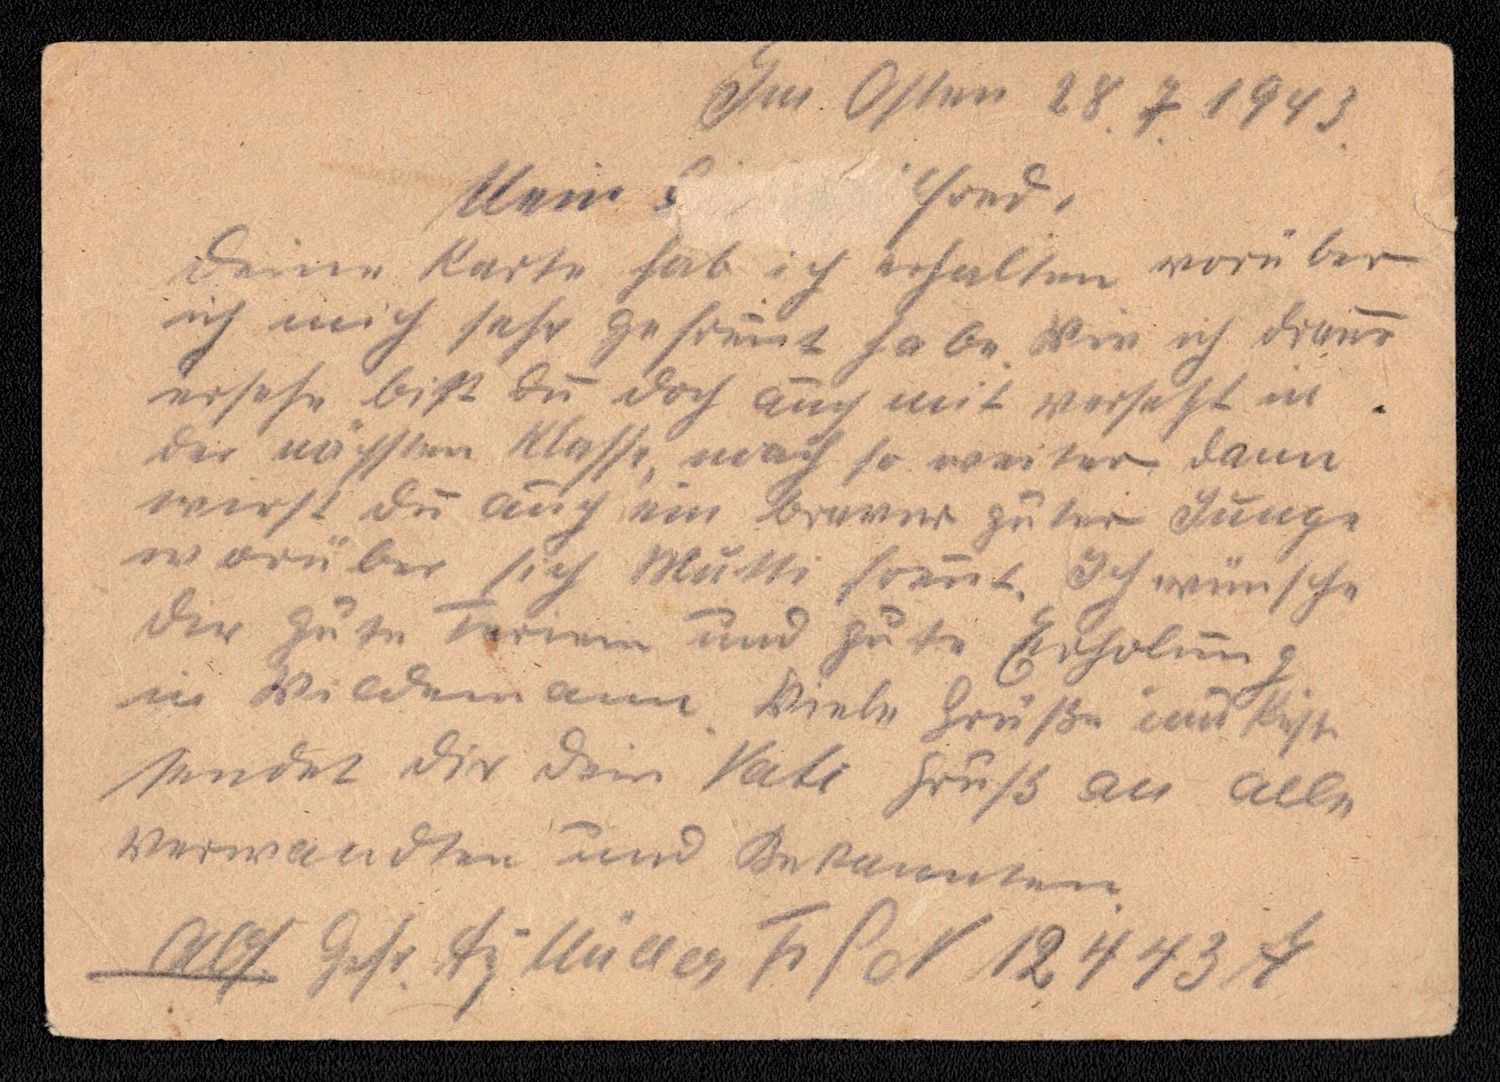 Im Osten 28.7.1943
Mein
Deine Karte hab ich erhalten worüber
ich mich sehr gefreut habe. Wie ich draus
ersehe bist du doch auch mit versetzt in
der nächsten Klasse, mach so weiter dann
wirst du auch ein braver guter Junge
worüber sich Mutti freut. Ich wünsche
dir gute Ferien und gute Erholung
in Wildemann. Viele Grüße und Küsse
sendet dir dein Vati Gruß an alle
Verwandten und Bekannten.
Abs. Gefr. Müller F.P.N 12443 A